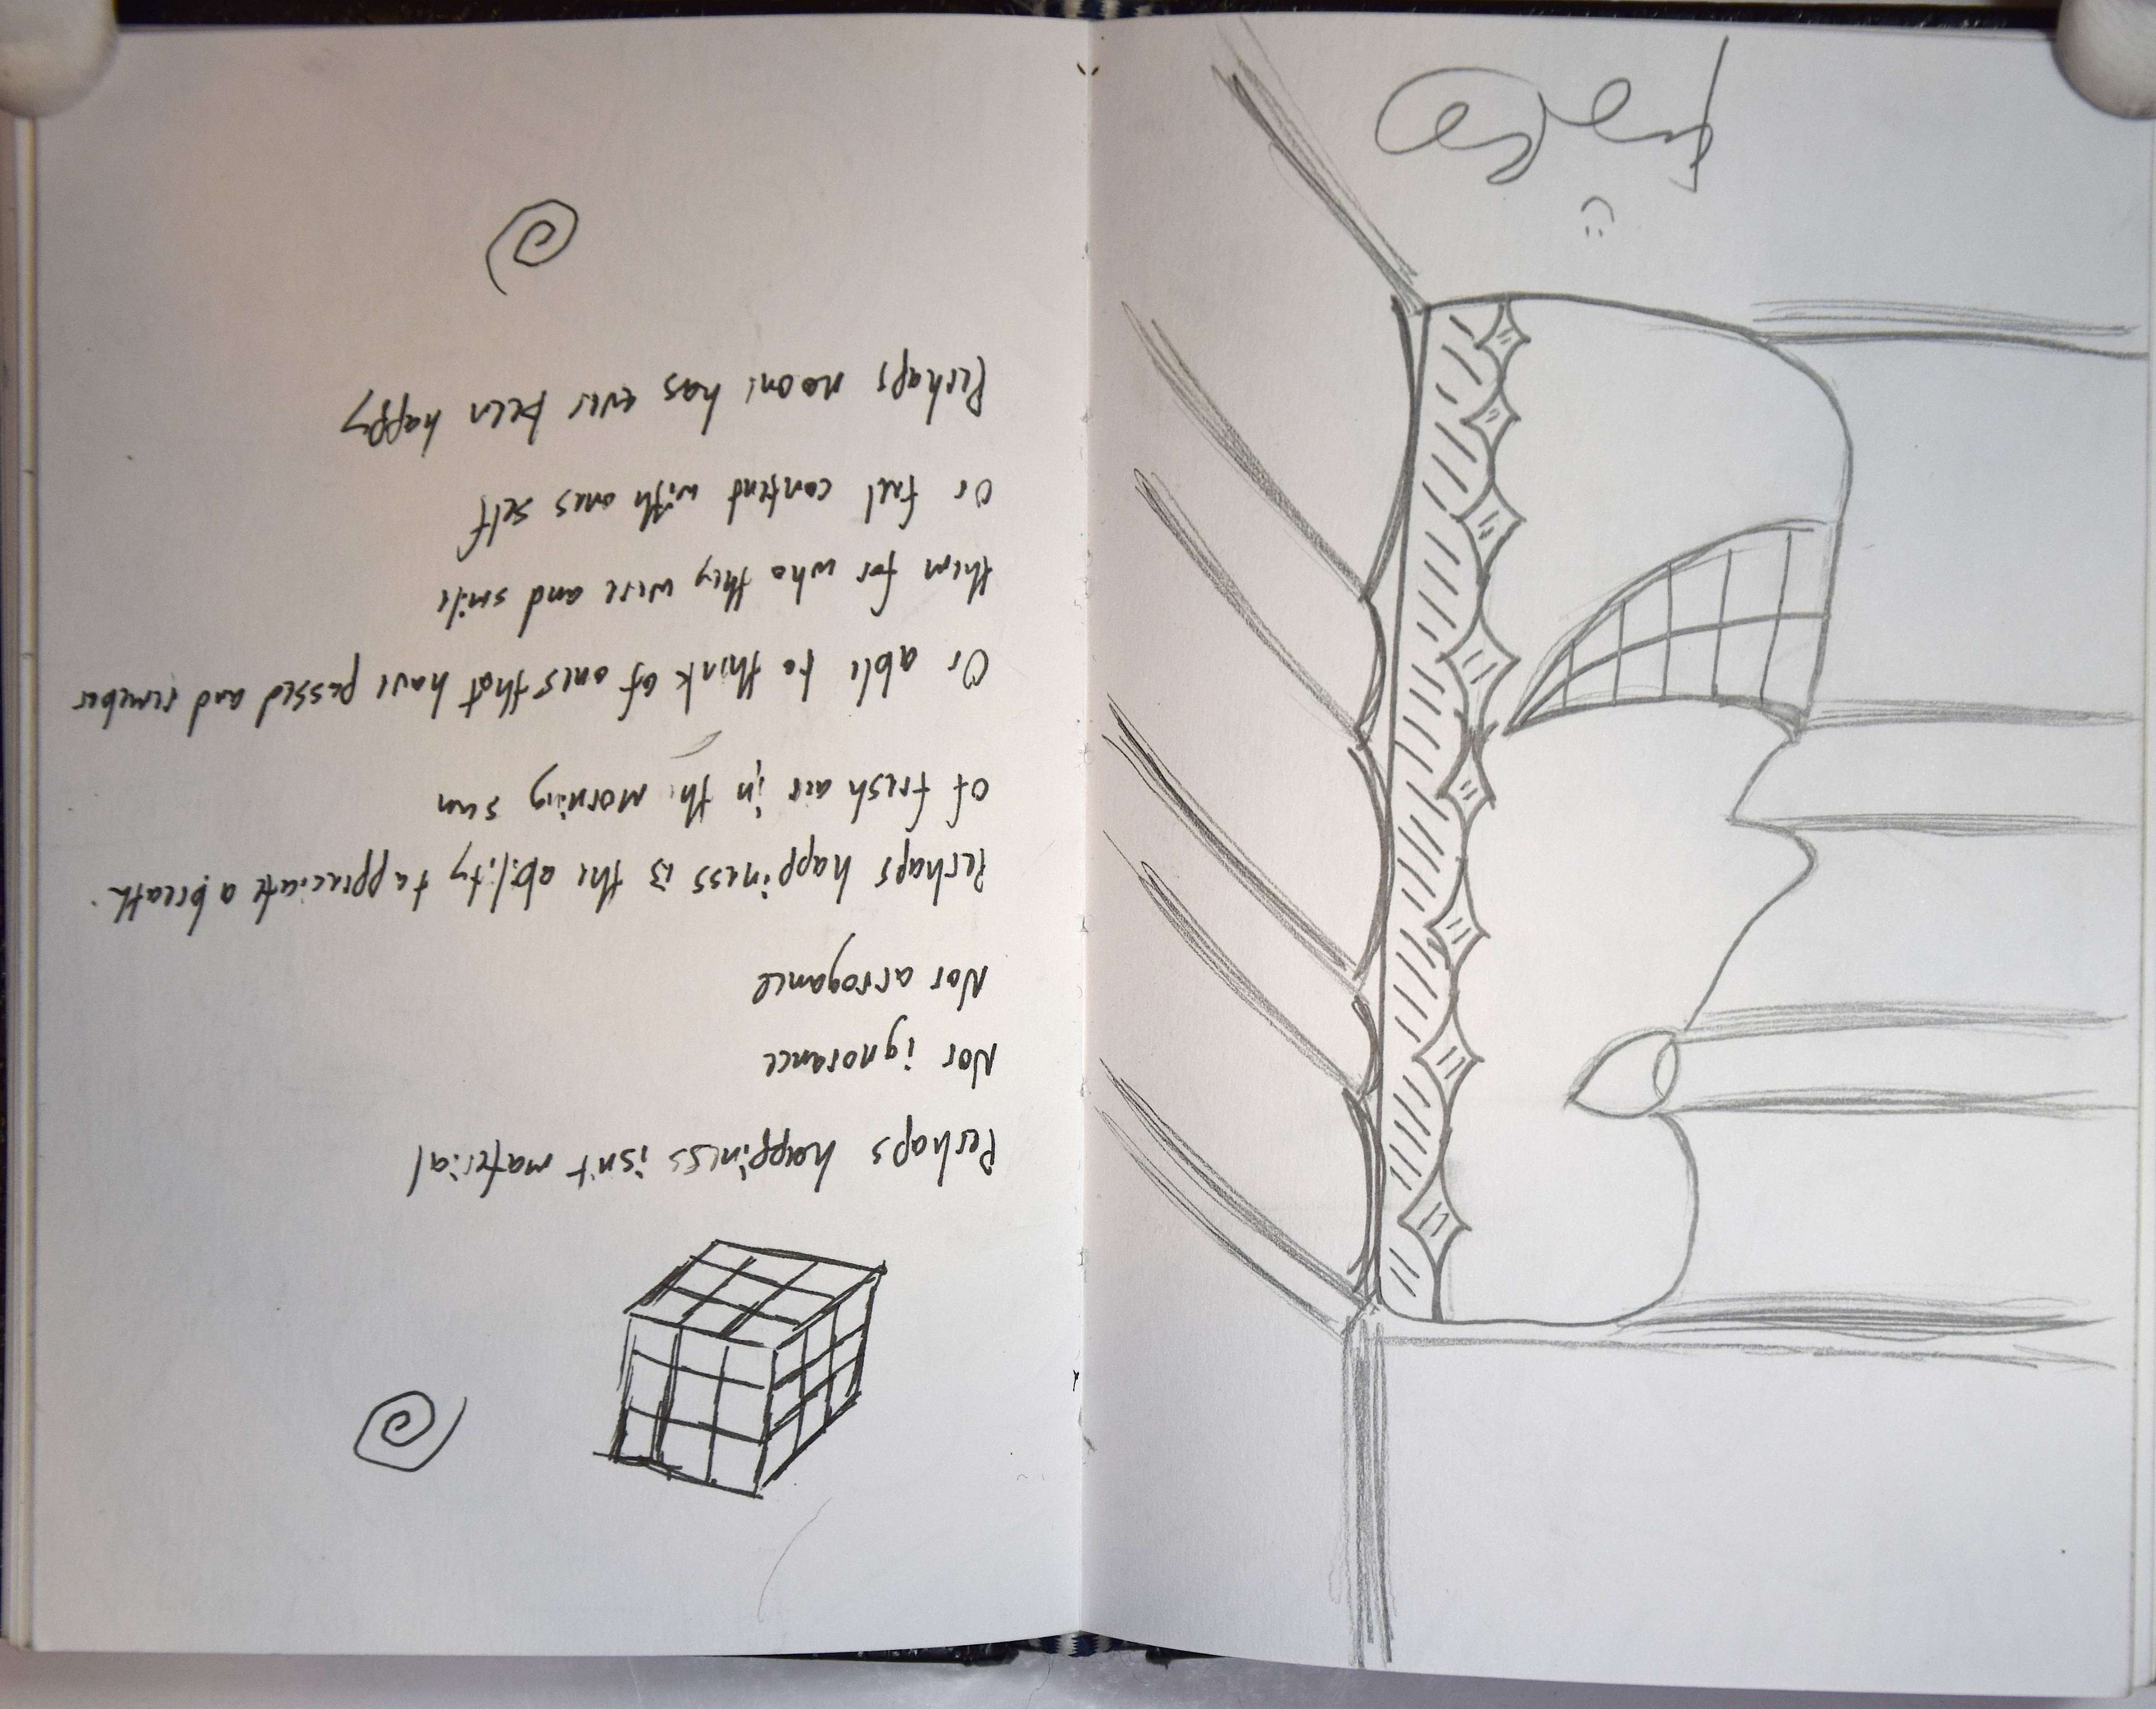 Perhaps happiness isn't material
Nor ignorance
Nor arrogance
Perhaps happiness is the ability t appreciate a breath
of fresh air in the morning sun
Or able to think of ones that have passed and remeber
them for who they were and smile
Or feel content with ones self
Perhaps noone has ever been happy